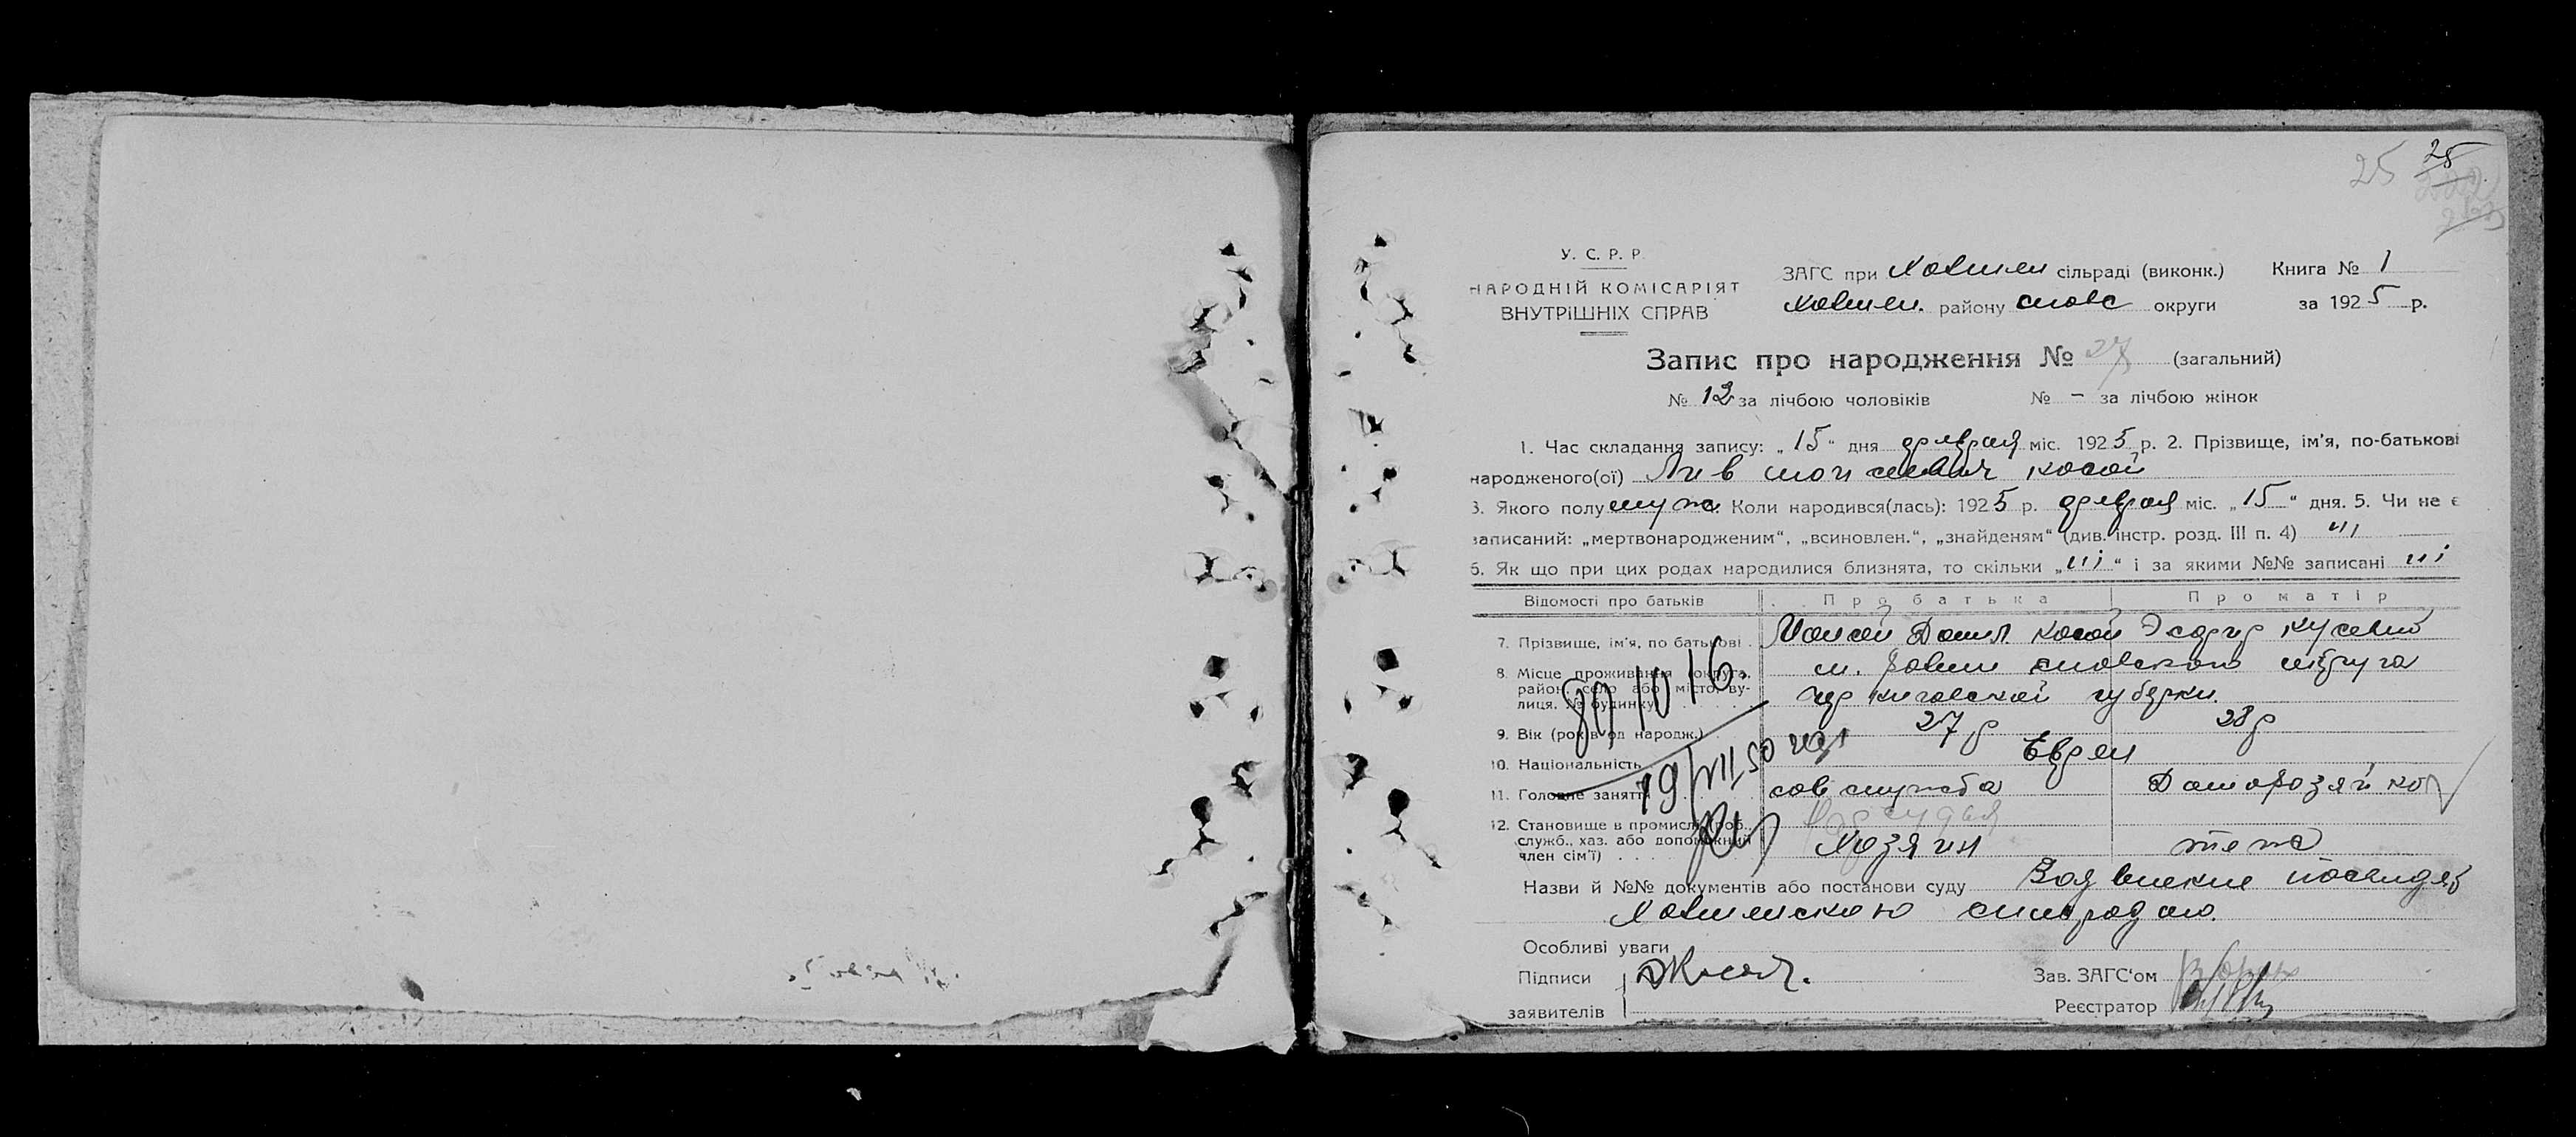 25 25
У. С. Р. Р.
НАРОДНІЙ КОМІСАРІЯТ
ВНУТРІШНІХ СПРАВ
ЗАГС при Холмен сільраді (виконк.) Книга № 1
Холмен. району сновс округи за 1925 р.
Запис про народження № 27 (загальний)
№ 12 за лічбою чоловіків № – за лічбою жінок
1. Час складання запису: „15“ дня февраля міс. 1925 р. 2. Прізвище, ім’я, по-батькові
народженого(ої) Лев моисеевич косой
3. Якого полу муж. Коли народився(лась): 1925 р. февраля міс. „15“ дня. 5. Чи не є
записаний: „мертвонародженим“, „всиновлен.“, „знайденям“ (див. інстр. розд. III п. 4)
6. Як що при цих родах народилися близнята, то скільки „ “ і за якими №№ записані
Відомості про батьків Про батька Про матір
7. Прізвище, ім’я, по батькові . Моисей Данил. Косой Эсфир
8. Місце проживання округа, м. сновского округа
район, село або місто, ву-
лиця. № будинку черниговской губерни.
9. Вік (років од народж.) 27 р 28 р
10. Національність Евреи
11. Головне заняття сов служба Домохозяйко
12. Становище в промисл. (роб.,
служб., хаз. або допоміжний Хозяин тоже
член сім’ї) . . . .
80 10 16.
19/VII 50
Назви й №№ документів або постанови суду Заявление
Холменскою сильрадою.
Особливі уваги
Підписи Зав. ЗАГС‘ом
заявителів Реєстратор